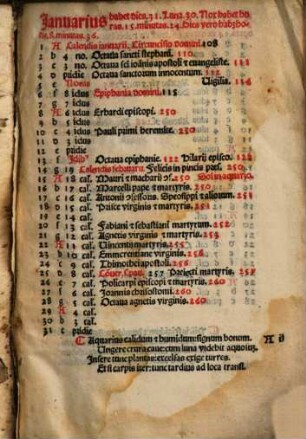 Januarius habet dies.31. Luna.30. Nox habet ho
ras.15.minutas.24. Dies vero hab3 ho
ras.8.minutas.36.
1 A Calendis ianuarij. Circuncisio domini 108
2 b 4 no. Octaua sancti stephani. 110
3 c 3 no. Octaua sci ioānis apostoli 7 euangeliste. 111
4 d pridie Octaua sanctorum innocentum. 112
5 e Nonis Uigilia. 114
6 f 8 idus Epiphania domini. 115
7 g 7 idus
8 A 6 idus Erhardi episcopi. 250
9 b 5 idus
10 c 4 idus Pauli primi heremite. 250
11 d 3 idus
12 e pridie
13 f Octaua epiphanie. 122 Hilarij episco. 122
14 g 19 Calendis februarij. Felicis in pincis pres. 250
15 A 18 cal. Mauri 7 macharij
16 b 17 cal. Marcelli pape 7 martyris. 250
17 c 16 cal. Antonij Speosippi 7 aliorum. 251
18 d 15 cal. Prisce virginis 7 martyris. 251
19 e 14 cal.
20 f 13 cal. Fabiani 7 sebastiani martyrum. 252
21 g 12 cal. Agnetis virginis 7 martyris. 253
22 A 11 cal. Uincentij martyris. 255
23 b 10 cal. Emmerentiane virginis. 256
24 c 9 cal. Thimothei apostoli. 256
25 d 8 cal. 257 Proiecti martyris. 257
26 e 7 cal. Policarpi episcopi 7 martyris. 260
27 f 6 cal. Joannis chrisostomi. 260
28 g 5 cal. Octaua agnetis virginis. 260
29 A 4 cal.
30 b 3 cal.
31 c pridie
Aquarius calidum 7 humidum: signum bonum. A ij
Ungere crura caue: cum luna videbit aquosum.
Insere tunc plantas: excelsas erige turres.
Et si carpis iter: tunc tardius ad loca transi.